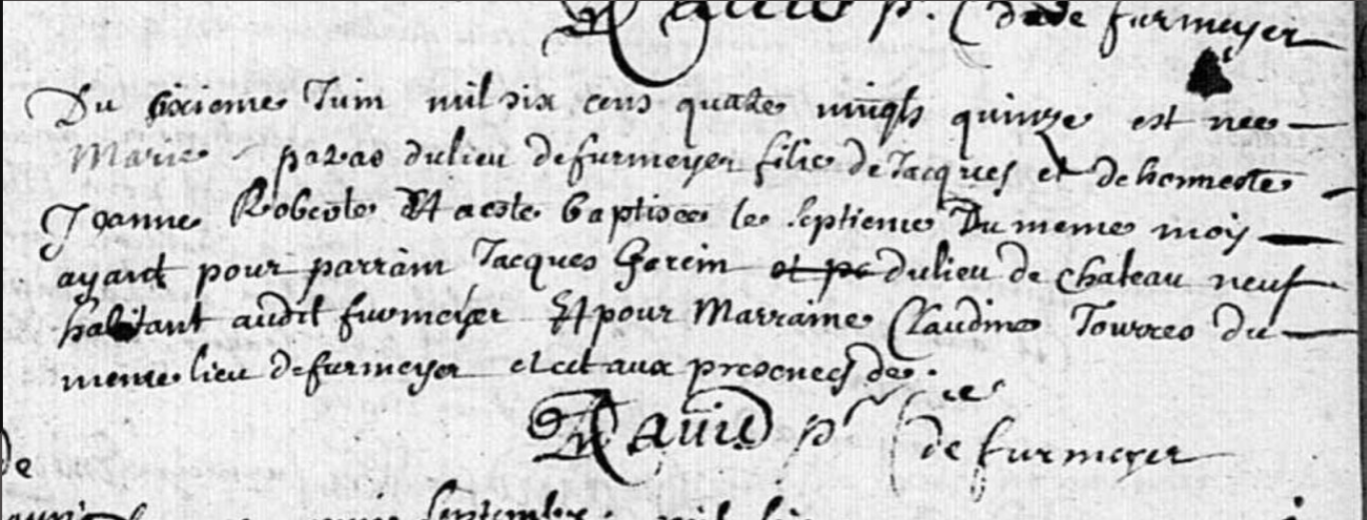 David p. de furmeyer
Du sixieme Juin mil six cens quatre vingts quinze est nee
Marie paras dulieu de furmeyer fille de Jacques et de honneste
Joanne Roberte Et a este baptisee le septieme Du meme mois
ayant pour parrain Jacques Gerein et pe dulieu de chateau neuf
habitant audit furmeyer Et pour Marraine Claudine Tourres du
meme lieu de furmeyer et cet aux presences de
David pr de furmeyer
de
septembre mil six